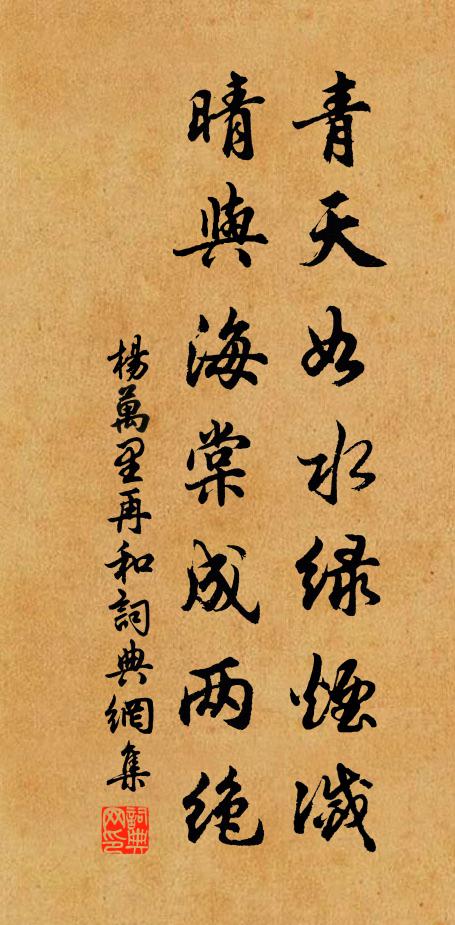 青天如水绿烟滅
晴與海棠成两绝
楊萬里再和詞典網集
詞典網印